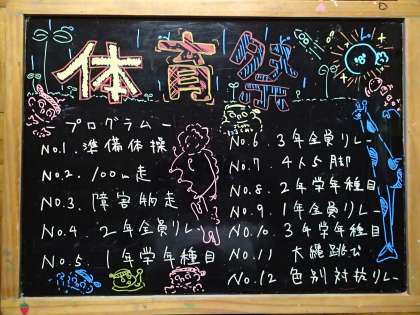 体育祭
プログラム
No.1. 準備体操
No.2. 100m走
No.3. 障害物走
No.4. 2年全員リレー
No.5. 1年学年種目
No.6. 3年全員リレー
No.7 4人5脚
No.8. 2年学年種目
No.9. 1年全員リレー
No.10. 3年学年種目
No.11 大縄跳び
No.12 色別対抗リレー